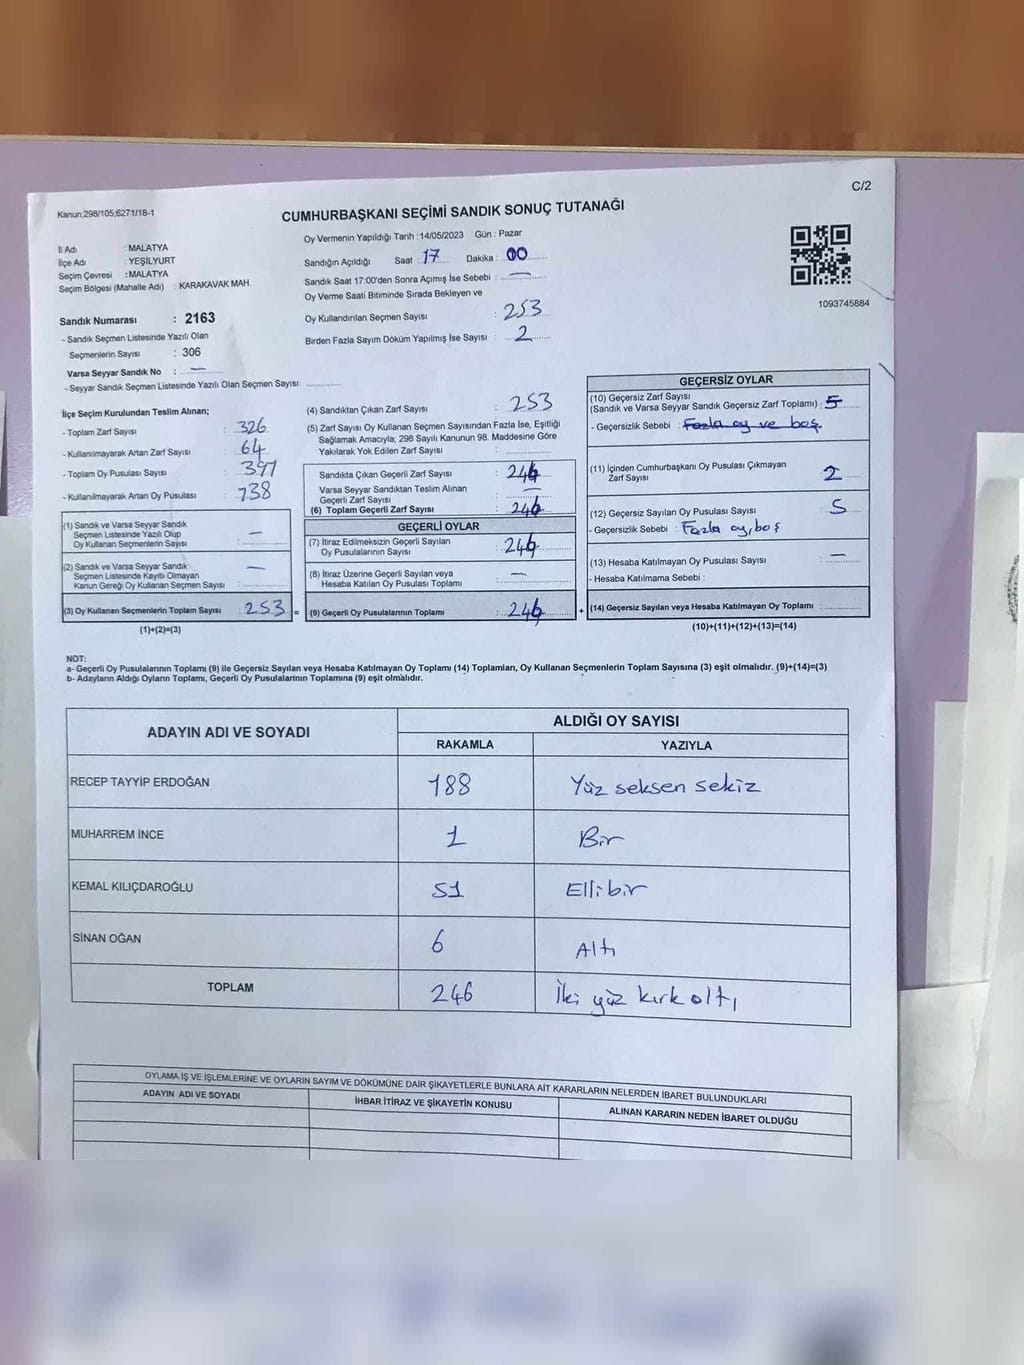 C/2
Kanun,298/105;6271/18-1
CUMHURBAŞKANI SEÇİMİ SANDIK SONUÇ TUTANAĞI
İl Adı : MALATYA
İlçe Adı : YEŞİLYURT
Seçim Çevresi : MALATYA
Seçim Bölgesi (Mahalle Adı) : KARAKAVAK MAH.
Oy Vermenin Yapıldığı Tarih : 14/05/2023 Gün : Pazar
Sandığın Açıldığı Saat : 17 Dakika : 00
Sandık Saat 17:00'den Sonra Açımış İse Sebebi : —
Oy Verme Saati Bitiminde Sırada Bekleyen ve
Oy Kullandırılan Seçmen Sayısı : 253
Birden Fazla Sayım Döküm Yapılmış İse Sayısı : 2
1093745884
Sandık Numarası : 2163
- Sandık Seçmen Listesinde Yazılı Olan
Seçmenlerin Sayısı : 306
Varsa Seyyar Sandık No : —
- Seyyar Sandık Seçmen Listesinde Yazılı Olan Seçmen Sayısı:
İlçe Seçim Kurulundan Teslim Alınan;
- Toplam Zarf Sayısı : 326
- Kullanılmayarak Artan Zarf Sayısı : 64
- Toplam Oy Pusulası Sayısı : 391
- Kullanılmayarak Artan Oy Pusulası : 138
(1) Sandık ve Varsa Seyyar Sandık
Seçmen Listesinde Yazılı Olup
Oy Kullanan Seçmenlerin Sayısı : —
(2) Sandık ve Varsa Seyyar Sandık
Seçmen Listesinde Kayıtlı Olmayan
Kanun Gereği Oy Kullanan Seçmen Sayısı : —
(3) Oy Kullanan Seçmenlerin Toplam Sayısı : 253 =
(1)+(2)=(3)
(4) Sandıktan Çıkan Zarf Sayısı : 253
(5) Zarf Sayısı Oy Kullanan Seçmen Sayısından Fazla İse, Eşitliği
Sağlamak Amacıyla; 298 Sayılı Kanunun 98. Maddesine Göre
Yakılarak Yok Edilen Zarf Sayısı :
Sandıkta Çıkan Geçerli Zarf Sayısı : 246
Varsa Seyyar Sandıktan Teslim Alınan
Geçerli Zarf Sayısı : —
(6) Toplam Geçerli Zarf Sayısı : 246
GEÇERLİ OYLAR
(7) İtiraz Edilmeksizin Geçerli Sayılan
Oy Pusulalarının Sayısı : 246
(8) İtiraz Üzerine Geçerli Sayılan veya
Hesaba Katılan Oy Pusulası Toplamı : —
(9) Geçerli Oy Pusulalarının Toplamı : 246 +
GEÇERSİZ OYLAR
(10) Geçersiz Zarf Sayısı
(Sandık ve Varsa Seyyar Sandık Geçersiz Zarf Toplamı) : 5
- Geçersizlik Sebebi : Fazla oy ve boş
(11) İçinden Cumhurbaşkanı Oy Pusulası Çıkmayan
Zarf Sayısı : 2
(12) Geçersiz Sayılan Oy Pusulası Sayısı : 5
- Geçersizlik Sebebi : Fazla oy, boş
(13) Hesaba Katılmayan Oy Pusulası Sayısı : —
- Hesaba Katılmama Sebebi :
(14) Geçersiz Sayılan veya Hesaba Katılmayan Oy Toplamı :
(10)+(11)+(12)+(13)=(14)
NOT:
a- Geçerli Oy Pusulalarının Toplamı (9) ile Geçersiz Sayılan veya Hesaba Katılmayan Oy Toplamı (14) Toplamları, Oy Kullanan Seçmenlerin Toplam Sayısına (3) eşit olmalıdır. (9)+(14)=(3)
b- Adayların Aldığı Oyların Toplamı, Geçerli Oy Pusulalarının Toplamına (9) eşit olmalıdır.
ADAYIN ADI VE SOYADI
ALDIĞI OY SAYISI
RAKAMLA YAZIYLA
RECEP TAYYİP ERDOĞAN 188 Yüz seksen sekiz
MUHARREM İNCE 1 Bir
KEMAL KILIÇDAROĞLU 51 Ellibir
SİNAN OĞAN 6 Altı
TOPLAM 246 İki yüz kırk altı
OYLAMA İŞ VE İŞLEMLERİNE VE OYLARIN SAYIM VE DÖKÜMÜNE DAİR ŞİKAYETLERLE BUNLARA AİT KARARLARIN NELERDEN İBARET BULUNDUKLARI
ADAYIN ADI VE SOYADI İHBAR İTİRAZ VE ŞİKAYETİN KONUSU ALINAN KARARIN NEDEN İBARET OLDUĞU